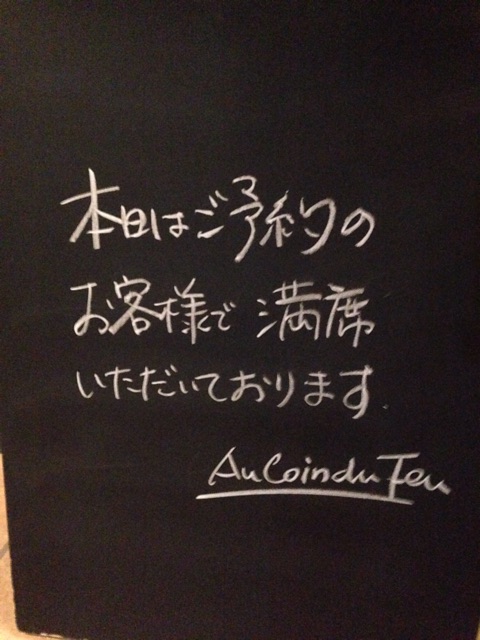 本日はご予約の
お客様で満席
いただいております.
Au Coin du Feu